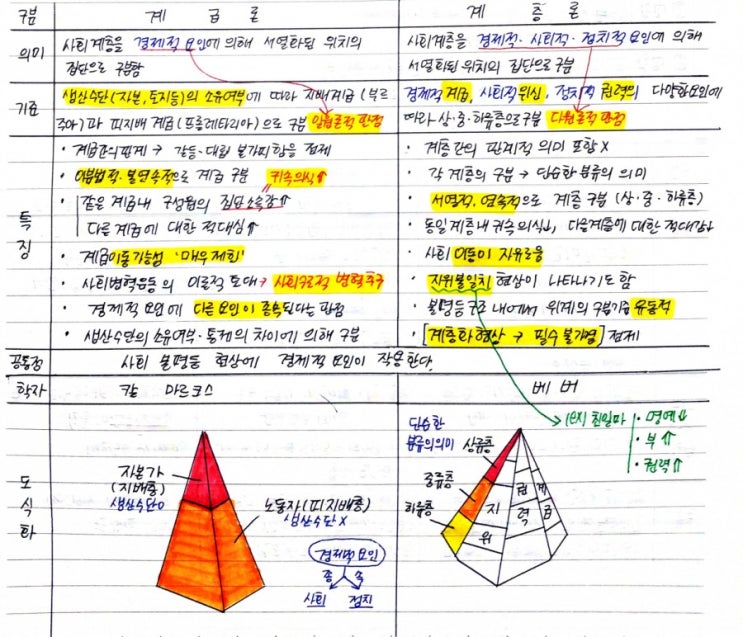 구분 계급론 계층론
의미 사회계층을 경제적 요인에 의해 서열화된 위치의 집단으로 구분함
사회계층을 경제적·사회적·정치적 요인에 의해 서열화된 위치의 집단으로 구분
기준 생산수단(자본,토지등)의 소유여부에 따라 지배계급(부르주아)과 피지배 계급(프롤레타리아)으로 구분 일원론적 관점
경제적 계급, 사회적 위신, 정치적 권력의 다양한 요인에 따라 상·중·하류층으로 구분 다원론적 관점
특징
· 계급간의 관계 → 갈등·대립 불가피함을 전제
· 이분법적·불연속적으로 계급 구분 귀속의식↑
· 같은 계급내 구성원의 집단소속감↑
다른 계급에 대한 적대심↑
· 계급이동가능성 '매우제한'
· 사회변혁운동의 이론적 토대 → 사회구조적 변혁추구
· 경제적 요인에 다른 요인이 종속된다는 관점
· 생산수단의 소유여부·통제의 차이에 의해 구분
· 계층간의 관계적 의미 포함 X
· 각 계층의 구분 → 단순한 분류의 의미
· 서열적, 연속적으로 계층 구분 (상·중·하류층)
· 동일계층내 귀속의식↓, 다음계층에 대한 적대감↓
· 사회 이동이 자유로움
· 지위불일치 현상이 나타나기도 함
· 불평등구조 내에서 위계의 구분기준 유동적
· [계층화현상 → 필수 불가결] 전제
공통점 사회 불평등 현상에 경제적 요인이 작용한다.
학자 칼 마르크스 베버
도식화
자본가
(지배층)
생산수단O
노동자(피지배층)
생산수단X
경제적요인
종 속
사회 정치
단순한
분류의의미
상류층
중류층
하류층
지위
권력
계급
친일파
· 명예↓
· 부↑
· 권력↑